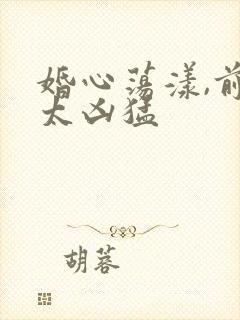 婚心荡漾,前
太凶猛
胡蓉